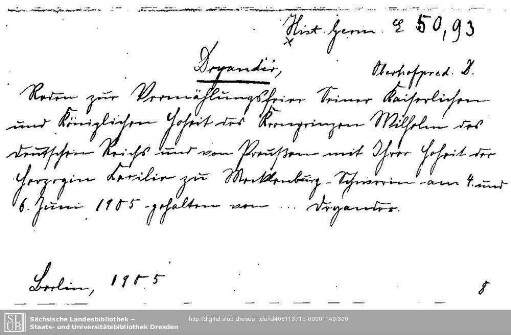 Hist. Germ. E 50,93
Dryander,
Oberhofpred. D.
Reden zur Vermählungsfeier Seiner Kaiserlichen
und Königlichen Hoheit des Kronprinzen Wilhelm des
Deutschen Reichs und von Preußen mit Ihrer Hoheit der
Herzogin Cecilie zu Mecklenburg-Schwerin am 4. und
6. Juni 1905 gehalten von ... Dryander.
Berlin, 1905
8
SLUB
Sächsische Landesbibliothek –
Staats- und Universitätsbibliothek Dresden